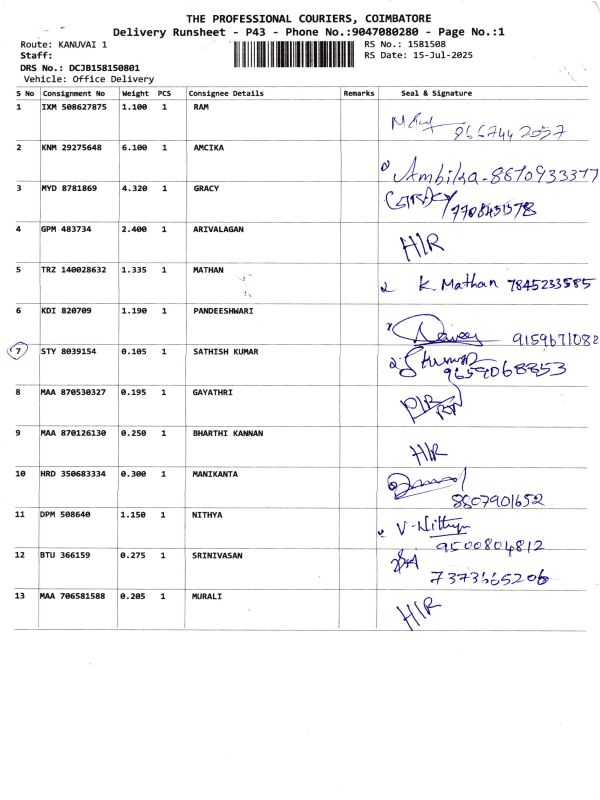 THE PROFESSIONAL COURIERS, COIMBATORE
Delivery Runsheet - P43 - Phone No.:9047080280 - Page No.:1
Route: KANUVAI 1 RS No.: 1581508
Staff: RS Date: 15-Jul-2025
DRS No.: DCJB158150801
Vehicle: Office Delivery
S No Consignment No Weight PCS Consignee Details Remarks Seal & Signature
1 IXM 508627875 1.100 1 RAM
2 KNM 29275648 6.100 1 AMCIKA
Ambika-8610933377
3 MYD 8781869 4.320 1 GRACY
GRACY
4 GPM 483734 2.400 1 ARIVALAGAN
HIR
5 TRZ 140028632 1.335 1 MATHAN K. Mathan 7845233585
6 KDI 820709 1.190 1 PANDEESHWARI
9159671082
7 STY 8039154 0.105 1 SATHISH KUMAR
9659068853
8 MAA 870530327 0.195 1 GAYATHRI
9 MAA 870126130 0.250 1 BHARTHI KANNAN
HIR
10 HRD 350683334 0.300 1 MANIKANTA
8807901652
11 DPM 508640 1.150 1 NITHYA
V-Nithya
9500804812
12 BTU 366159 0.275 1 SRINIVASAN
7373665206
13 MAA 706581588 0.205 1 MURALI
HIR